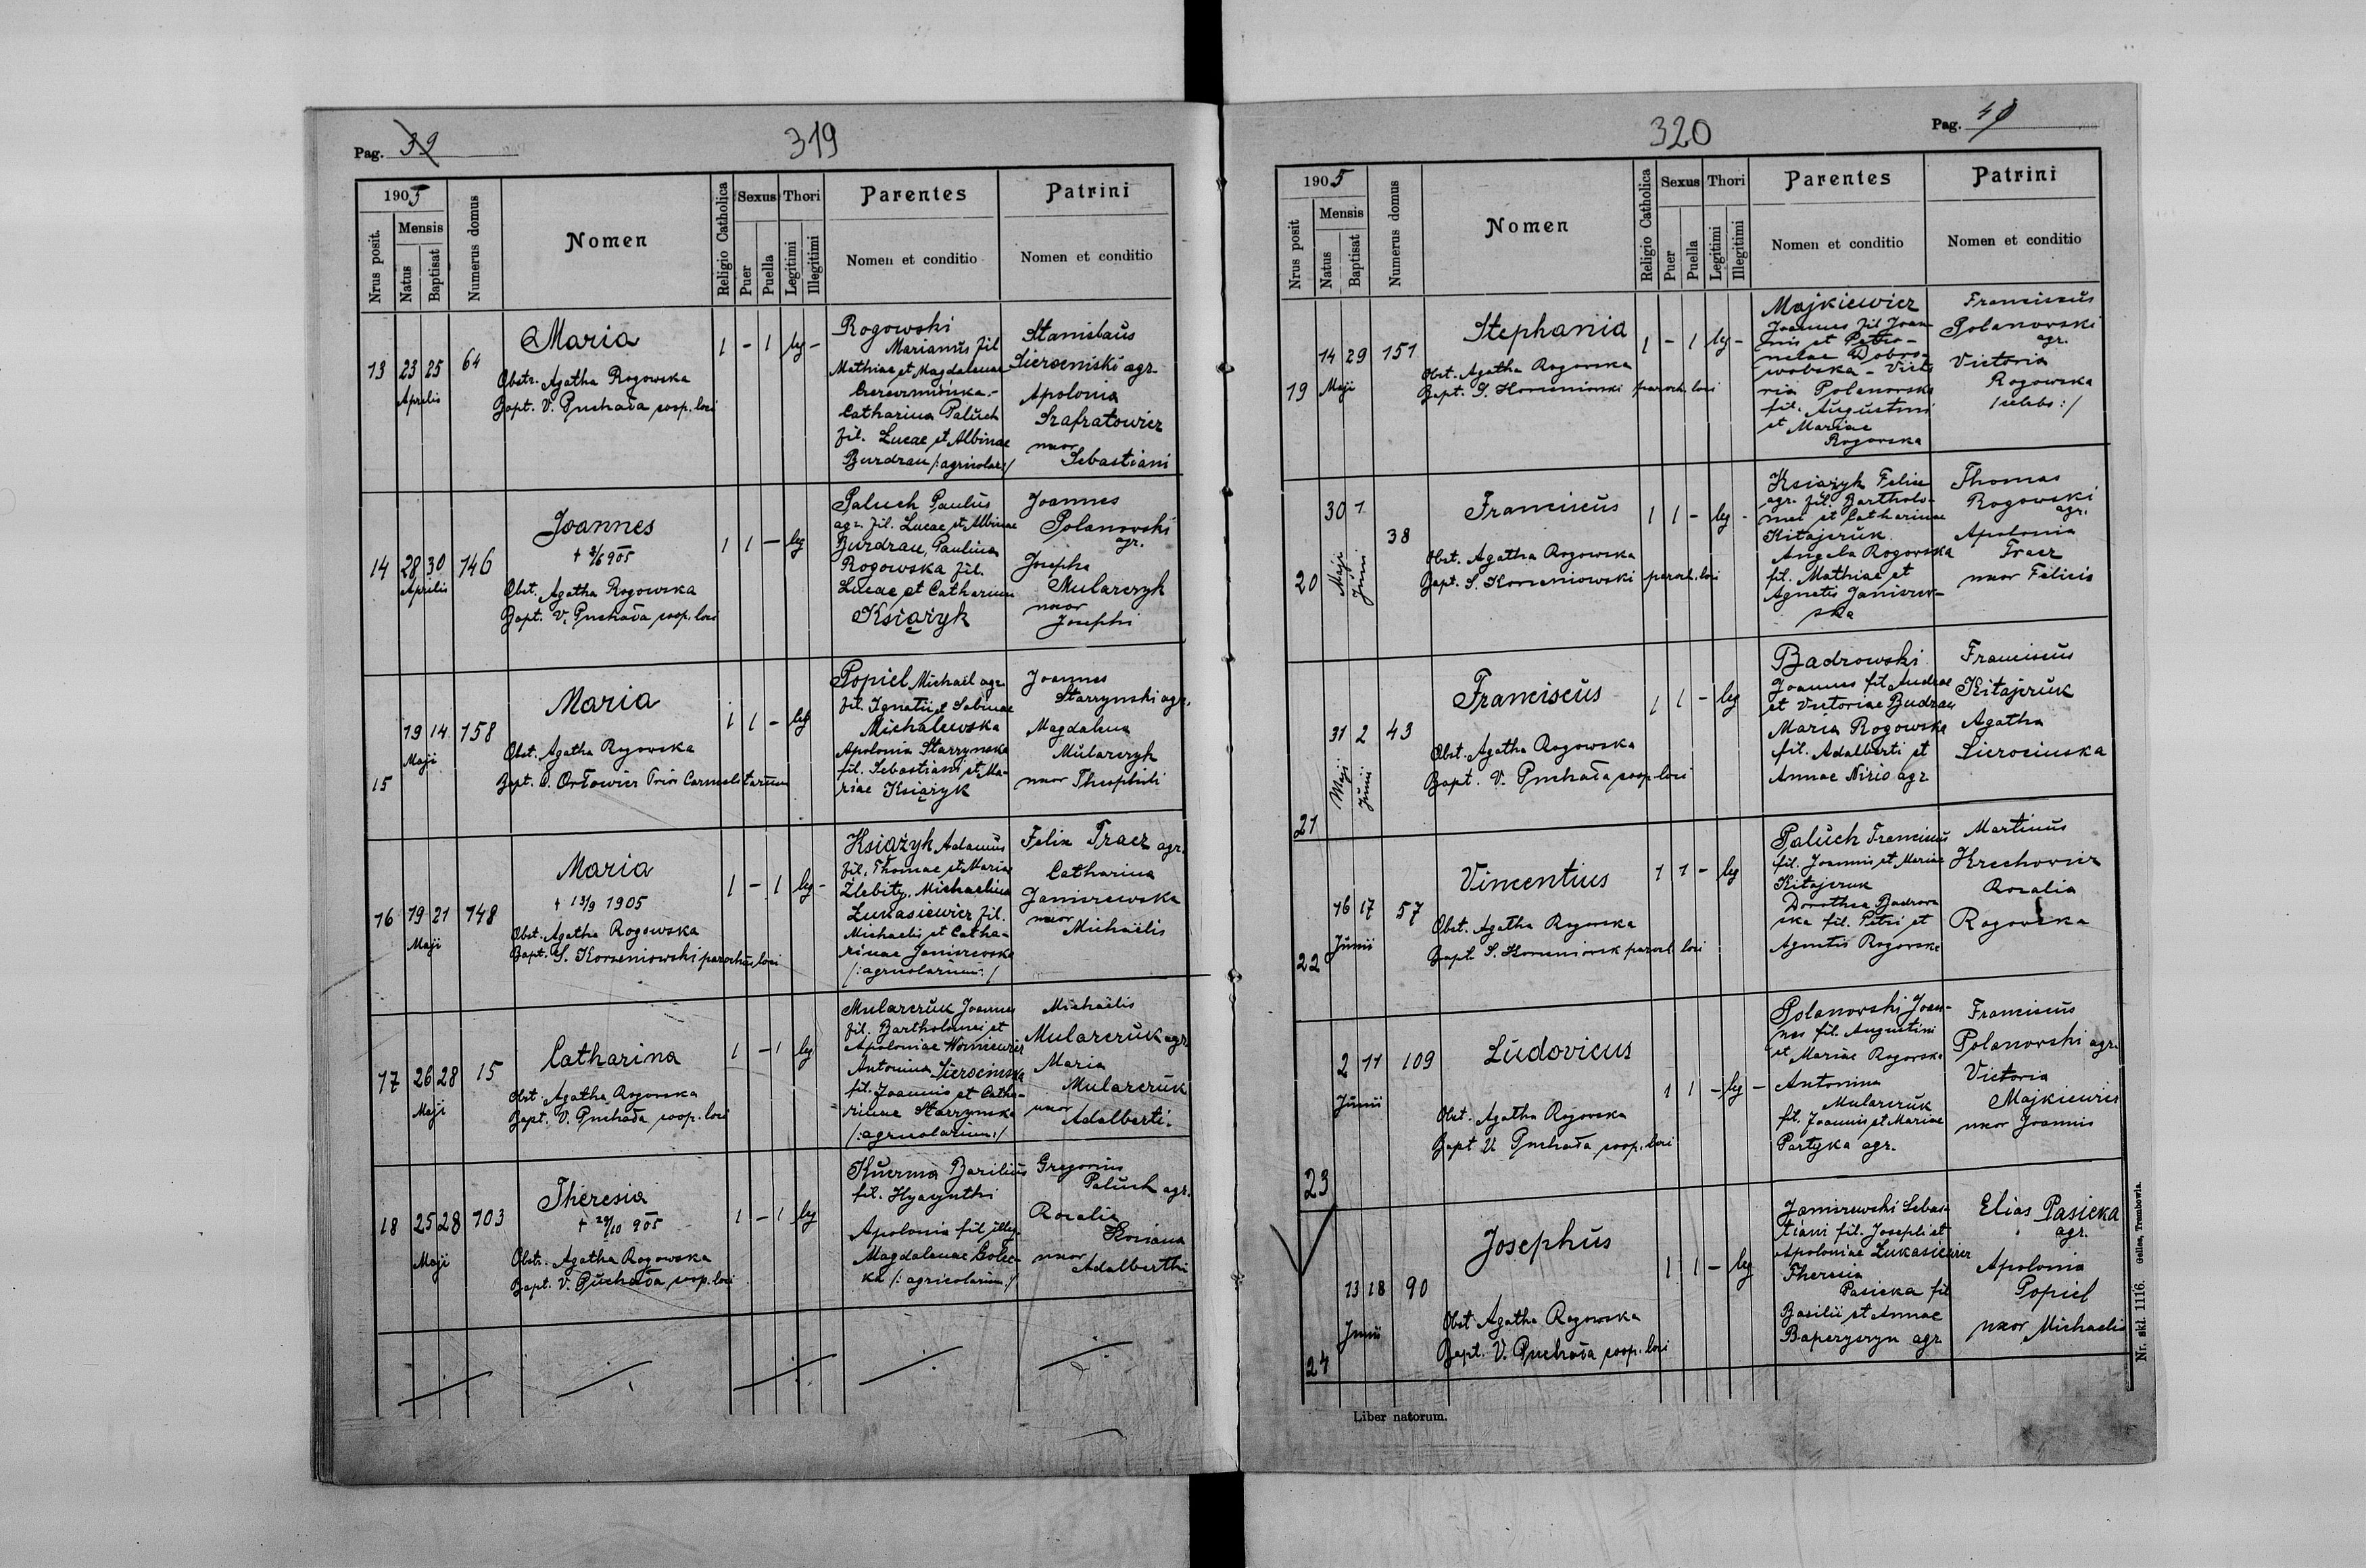 Pag. 39
319
1905
Nrus posit.
Mensis
Natus
Baptisat
Numerus domus
Nomen
Religio Catholica
Sexus
Puer
Puella
Thori
Legitimi
Illegitimi
Parentes
Nomen et conditio
Patrini
Nomen et conditio
13
23 25
Aprilis
64
Maria
Obstr. Agatha Rogowska
Bapt. V. Puchała coop. loci
1 - 1 leg -
Rogowski
Marianus fil
Mathiae et Magdalenae
Catharina Paluch
fil. Lucae et Albinae
Burdzau /:agricolar:/
Stanislaus
Sierocinski agr.
Apolonia
Szafratowicz
uxor
Sebastiani
14
28 30
Aprilis
146
Joannes
+ 2/6 905
Obst. Agatha Rogowska
Bapt. V. Puchała coop. loci
1 1 - leg
Paluch Paulus
agr. fil. Lucae et Albinae
Burdzau, Paulina
Rogowska fil.
Lucae et Catharinae
Książyk
Joannes
Polanowski
agr.
Josepha
Mularczyk
uxor
Josephi
15
19 14
Maji
158
Maria
Obst. Agatha Rogowska
Bapt. D. Orłowicz Prior Carmelitarum
1 1 - leg
Popiel Michael agr
fil. Ignatii et Sabinae
Michalewska
Apolonia Starzynska
fil. Sebastiani et Ma-
riae Książyk
Joannes
Starzynski agr.
Magdalena
Mularczyk
uxor Theophili
16
19 21
Maji
148
Maria
+ 13/9 1905
Obst. Agatha Rogowska
Bapt. S. Korzeniowski parochus loci
1 - 1 leg -
Książyk Adamus
fil. Thomae et Maria
Żlebity, Michaelina
Łukasiewicz fil.
Michaelis et Catha-
rinae Janiszewska
/:agricolarum:/
Felix Tracz agr.
Catharina
Janiszewska
uxor
Michaelis
17
26 28
Maji
15
Catharina
Obst. Agatha Rogowska
Bapt. V. Puchała coop. loci
1 - 1 leg
Mularczuk Joannes
fil. Bartholomei et
Apoloniae Worniewicz
Antonina Sierocinska
fil. Joannis et Catha-
rinae Starzynska
/:agricolarum:/
Michaelis
Mularczuk agr
Maria
Mularczuk
uxor
Adalberti.
18
25 28
Maji
103
Theresia
+ 29/10 905
Obstr. Agatha Rogowska
Bapt. V. Puchała coop. loci
1 - 1 leg
Kuczma Basilius
fil. Hyacynthi
Apolonia fil illeg
Magdalenae Golec-
ka /:agricolarum:/
Gregorius
Paluch agr.
Rozalia
uxor
Adalberthi
320
Pag. 40
1905
Nrus posit
Mensis
Natus
Baptisat
Numerus domus
Nomen
Religio Catholica
Sexus
Puer
Puella
Thori
Legitimi
Illegitimi
Parentes
Nomen et conditio
Patrini
Nomen et conditio
19
14 29
Maji
151
Stephania
Obst. Agatha Rogowska
Bapt. S. Korzeniowski paroch. loci
1 - 1 leg -
Majkiewicz
Joannes fil Joan-
nis et Petro-
nelae Dobro-
wolska - Victo
ria Polanowska
fil. Augustini
et Mariae
Rogowska
Franciscus
Polanowski
agr.
Victoria
Rogowska
/celebs:/
20
30 1
Maji Junii
38
Franciscus
Obst. Agatha Rogowska
Bapt. S. Korzeniowski paroch. loci
1 1 - leg -
Książyk Felix
agr. fil. Bartholo-
mei et Catharinae
Kitajczuk
Angela Rogowska
fil. Mathiae et
Agnetis Janiszew-
ska
Thomas
Rogowski
agr.
Apolonia
Tracz
uxor Felicis
21
31 2
Maji Junii
43
Franciscus
Obst. Agatha Rogowska
Bapt. V. Puchała coop. loci
1 1 - leg
Badrowski
Joannes fil Andreae
et Victoriae Budzau
Maria Rogowska
fil. Adalberti et
Annae Nizio agr
Franciscus
Kitajczuk
Agatha
Sierocinska
22
16 17
Junii
57
Vincentius
Obst. Agatha Rogowska
Bapt S. Korzeniowsk paroch loci
1 1 - leg
Paluch Franciscus
fil. Joannis et Mariae
Kitajczuk
Dorothea Badrow
ska fil. Petri et
Agnetis Rogowska
Martinus
Krechowicz
Rozalia
Rogowska
23
2 11
Junii
109
Ludovicus
Obst. Agatha Rogowska
Bapt V. Puchała coop. loci
1 1 - leg -
Polanowski Joan-
nes fil. Augustini
et Mariae Rogowska
Antonina
Mularczuk
fil. Joannis et Mariae
Partyka agr.
Franciscus
Polanowski agr.
Victoria
Majkiewicz
uxor Joannis
24
13 18
Junii
90
Josephus
Obst Agatha Rogowska
Bapt. V. Puchała coop. loci
1 1 - leg
Janiszewski Sebas
tiani fil. Josephi et
Apoloniae Łukasiewicz
Theresia
Pasieka fil
Basilii et Annae
Elias Pasieka
agr.
Apolonia
Popiel
uxor Michaelis
Liber natorum.
Nr. skł. 1116. Gelles, Trembowla.